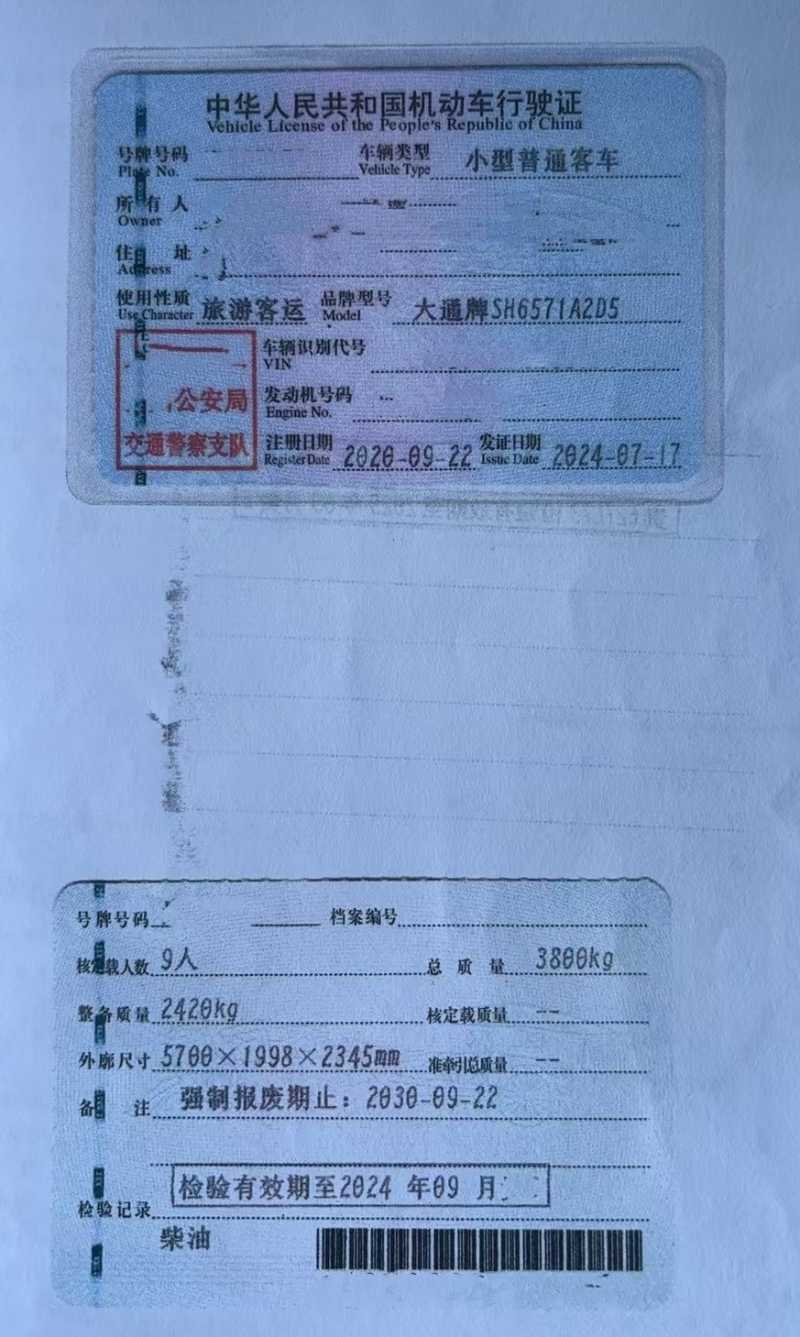 中华人民共和国机动车行驶证
Vehicle License of the People's Republic of China
号牌号码 车辆类型 小型普通客车
Plate No. Vehicle Type
所有人
Owner
住址
Address
使用性质 旅游客运 品牌型号 大通牌SH6571A2D5
Use Character Model
车辆识别代号
VIN
公安局
交通警察支队
发动机号码
Engine No.
注册日期 2020-09-22 发证日期 2024-07-17
Register Date Issue Date
号牌号码 档案编号
核定载人数 9人 总质量 3800kg
整备质量 2420kg 核定载质量 --
外廓尺寸 5700×1998×2345mm 准牵引总质量 --
备注 强制报废期止：2030-09-22
检验有效期至2024年09月
检验记录
柴油